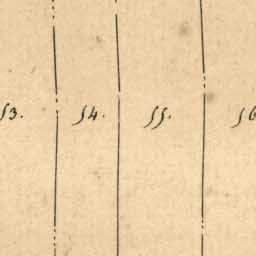 53. 54. 55. 56